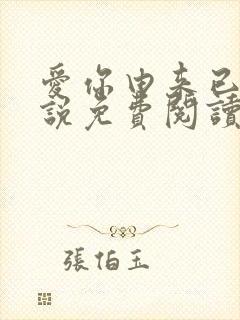 愛你由來已
說免費閱讀
張伯玉